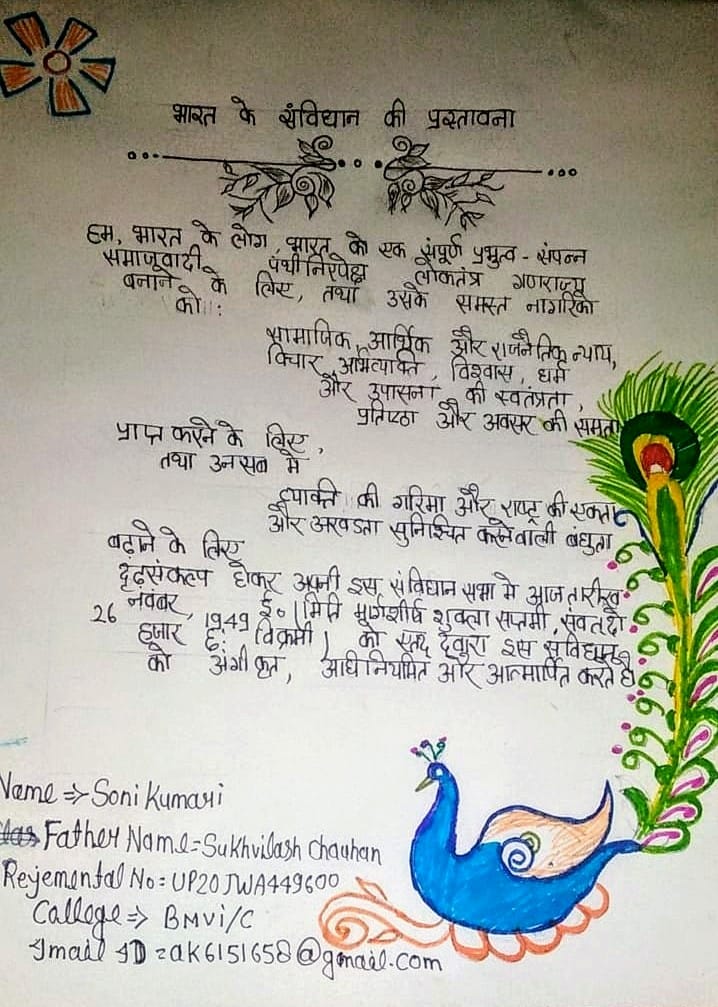 भारत के संविधान की प्रस्तावना
हम, भारत के लोग, भारत को एक संपूर्ण प्रभुत्व - संपन्न
समाजवादी पंथीनिरपेक्ष लोकतंत्र गणराज्य
बनाने के लिए, तथा उसके समस्त नागरिको
को :
सामाजिक, आर्थिक और राजनैतिक न्याय,
विचार, अभिव्यक्ति, विश्वास, धर्म
और उपासना की स्वतंत्रता,
प्रतिष्ठा और अवसर की समता
प्राप्त करने के लिए,
तथा उन सब मे
व्यक्ति की गरिमा और राष्ट्र की एकता
और अखण्डता सुनिश्चित करने वाली बंधुता
बढ़ाने के लिए
दृढ़संकल्प होकर अपनी इस संविधान सभा मे आज तारीख
26 नवंबर, 1949 ई० (मिति मार्गशीर्ष शुक्ला सप्तमी, संवत दो
हजार छ: विक्रमी) को एतद् द्वारा इस संविधान
को अंगीकृत, अधिनियमित और आत्मार्पित करते है
Name ⇒ Soni Kumari
Father Name = Sukhvilash chauhan
Rejemental No: UP20JWA449600
Callege ⇒ BMVI/C
Gmail ID = ak6151658@gmail.com